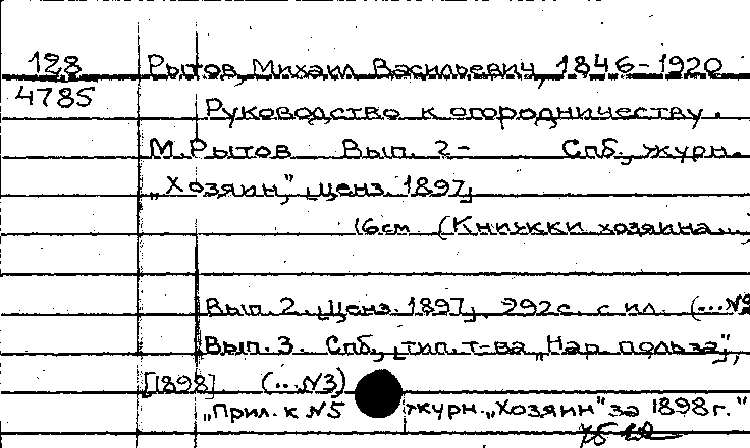 128 Рытов, Михаил Васильевич, 1846-1920
4785
Руководство к огородничеству.
М. Рытов Вып. 2- Спб., журн.
„Хозяин”, [ценз. 1897]
16см (Книжки хозяина...)
Вып. 2. [Ценз. 1897]. 292с. с ил. (...№2
Вып. 3. Спб., [тип. т-ва „Нар. польза”,
[1898]. (...№3)
„Прил. к №5 журн. „Хозяин” за 1898г.”